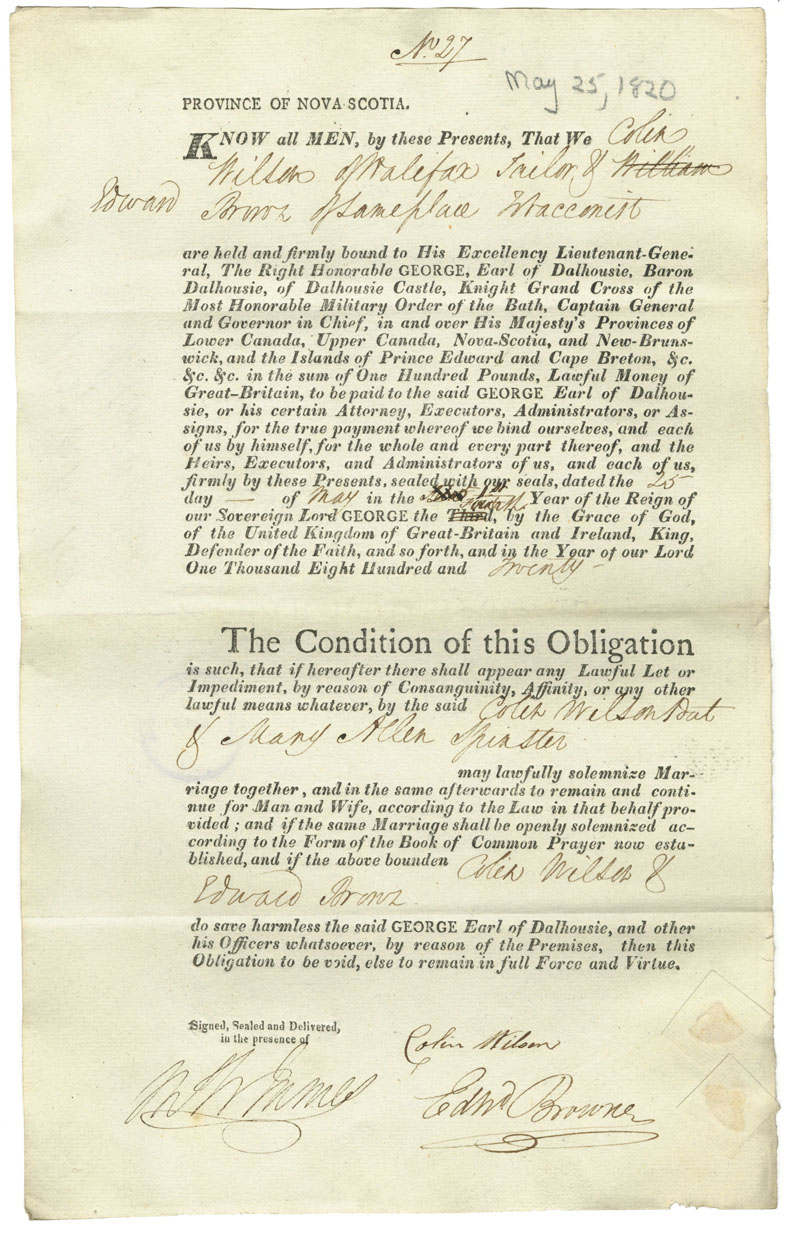 No. 27
May 25, 1820
PROVINCE OF NOVA SCOTIA.
KNOW all MEN, by these Presents, That We Colin
Wilson of Halifax Tailor & William
Edward Brown of same place Tobacconist
are held and firmly bound to His Excellency Lieutenant-Gene-
ral, The Right Honorable GEORGE, Earl of Dalhousie, Baron
Dalhousie, of Dalhousie Castle, Knight Grand Cross of the
Most Honorable Military Order of the Bath, Captain General
and Governor in Chief, in and over His Majesty's Provinces of
Lower Canada, Upper Canada, Nova-Scotia, and New-Bruns-
wick, and the Islands of Prince Edward and Cape Breton, &c.
&c. &c. in the sum of One Hundred Pounds, Lawful Money of
Great-Britain, to be paid to the said GEORGE Earl of Dalhou-
sie, or his certain Attorney, Executors, Administrators, or As-
signs, for the true payment whereof we bind ourselves, and each
of us by himself, for the whole and every part thereof, and the
Heirs, Executors, and Administrators of us, and each of us,
firmly by these Presents, sealed with our seals, dated the 25
day — of May in the 1st Year of the Reign of
our Sovereign Lord GEORGE the Third Fourth, by the Grace of God,
of the United Kingdom of Great-Britain and Ireland, King,
Defender of the Faith, and so forth, and in the Year of our Lord
One Thousand Eight Hundred and Twenty –
The Condition of this Obligation
is such, that if hereafter there shall appear any Lawful Let or
Impediment, by reason of Consanguinity, Affinity, or any other
lawful means whatever, by the said Colin Wilson Bat
& Mary Allen Spinster
may lawfully solemnize Mar-
riage together, and in the same afterwards to remain and conti-
nue for Man and Wife, according to the Law in that behalf pro-
vided; and if the same Marriage shall be openly solemnized ac-
cording to the Form of the Book of Common Prayer now esta-
blished, and if the above bounden Colin Wilson &
Edward Brown
do save harmless the said GEORGE Earl of Dalhousie, and other
his Officers whatsoever, by reason of the Premises, then this
Obligation to be void, else to remain in full Force and Virtue.
Signed, Sealed and Delivered,
in the presence of
Colin Wilson
James
Edwd Browne